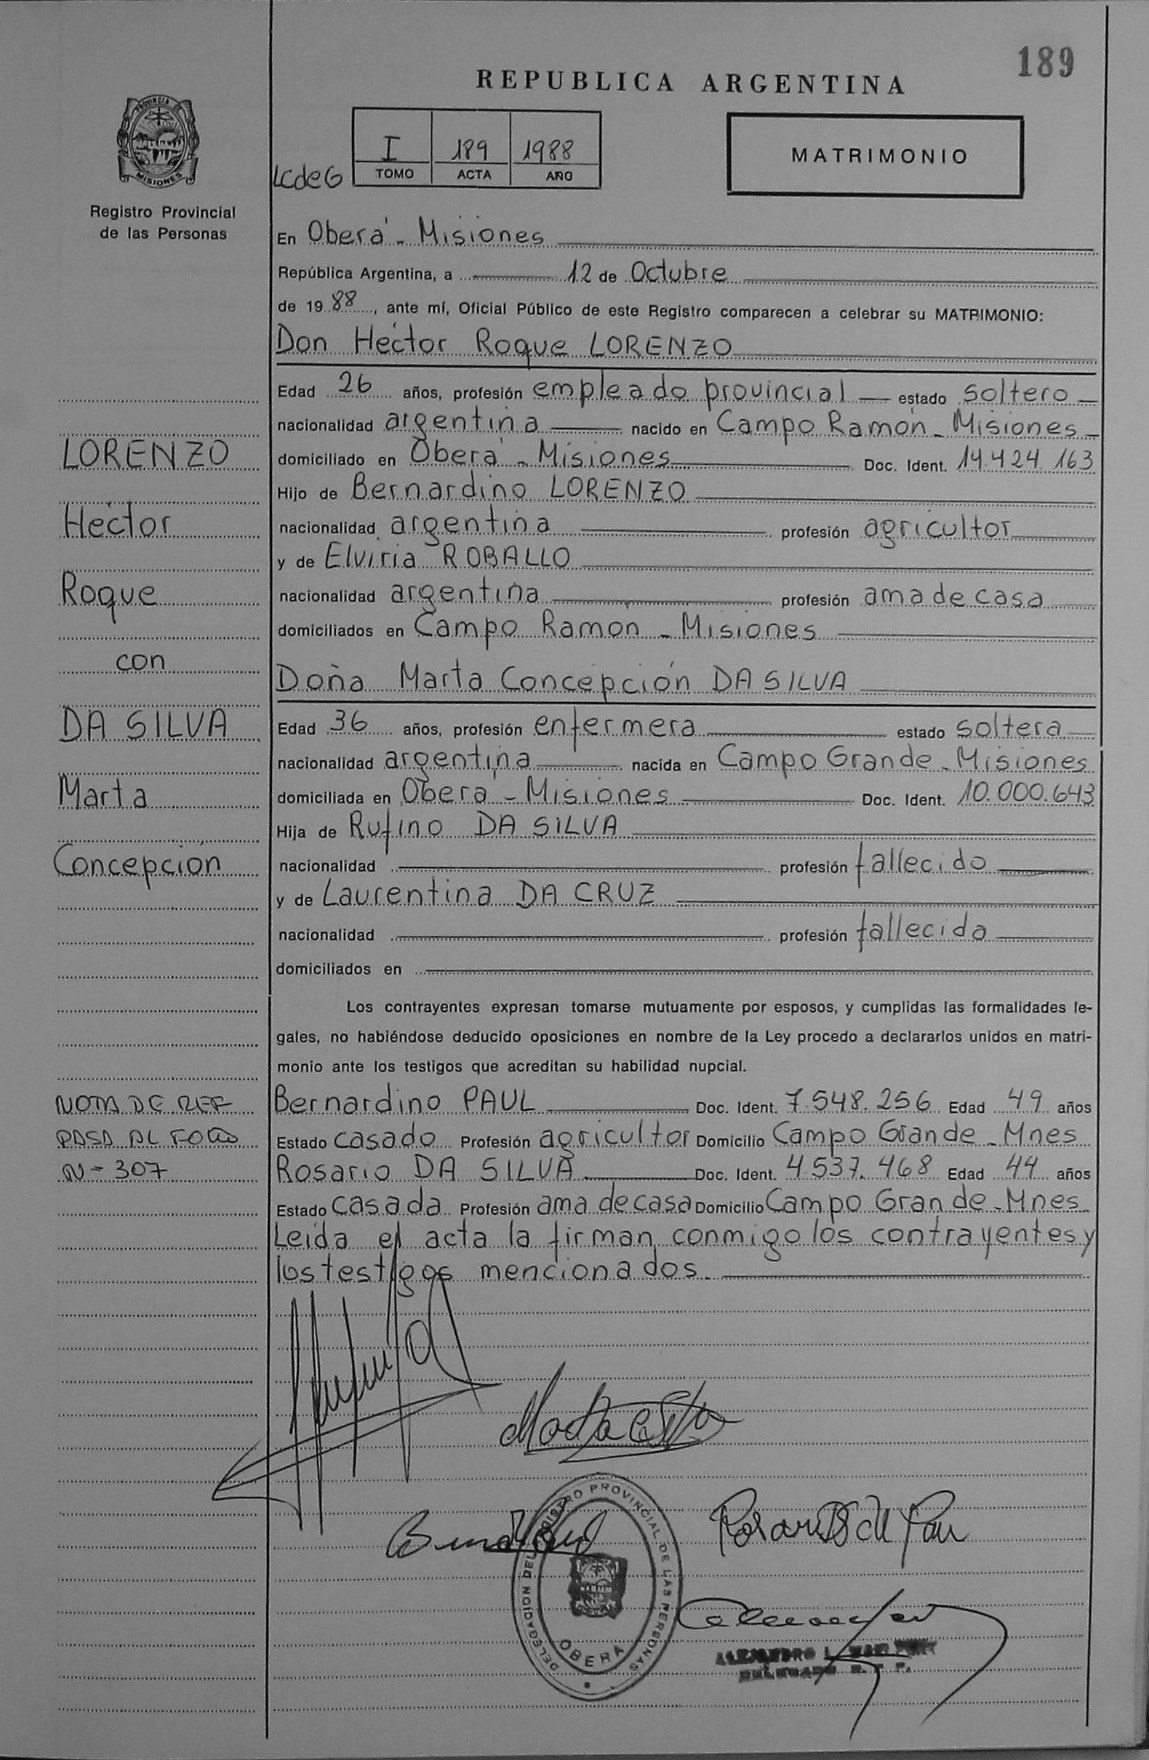 189
REPUBLICA ARGENTINA
PROVINCIA DE MISIONES
Registro Provincial
de las Personas
LCdeG
I 189 1988
TOMO ACTA AÑO
MATRIMONIO
En Oberá - Misiones
República Argentina, a 12 de Octubre
de 19 88, ante mí, Oficial Público de este Registro comparecen a celebrar su MATRIMONIO:
Don Héctor Roque LORENZO
Edad 26 años, profesión empleado provincial estado soltero
nacionalidad argentina nacido en Campo Ramón - Misiones
domiciliado en Oberá - Misiones Doc. Ident. 14.424.163
Hijo de Bernardino LORENZO
nacionalidad argentina profesión agricultor
y de Elviria ROBALLO
nacionalidad argentina profesión ama de casa
domiciliados en Campo Ramon - Misiones
Doña Marta Concepción DA SILVA
Edad 36 años, profesión enfermera estado soltera
nacionalidad argentina nacida en Campo Grande - Misiones
domiciliada en Oberá - Misiones Doc. Ident. 10.000.643
Hija de Rufino DA SILVA
nacionalidad profesión fallecido
y de Laurentina DA CRUZ
nacionalidad profesión fallecida
domiciliados en
Los contrayentes expresan tomarse mutuamente por esposos, y cumplidas las formalidades le-
gales, no habiéndose deducido oposiciones en nombre de la Ley procedo a declararlos unidos en matri-
monio ante los testigos que acreditan su habilidad nupcial.
Bernardino PAUL Doc. Ident. 7.548.256 Edad 49 años
Estado casado Profesión agricultor Domicilio Campo Grande - Mnes
Rosario DA SILVA Doc. Ident. 4.537.468 Edad 44 años
Estado casada Profesión ama de casa Domicilio Campo Grande - Mnes
Leída el acta la firman conmigo los contrayentes y
los testigos mencionados.
LORENZO
Héctor
Roque
con
DA SILVA
Marta
Concepción
NOTA DE REF
PASA AL FOLIO
N - 307
DELEGACION DEL REGISTRO PROVINCIAL DE LAS PERSONAS
OBERA
ALEJANDRO L.
DELEGADO R. P. P.